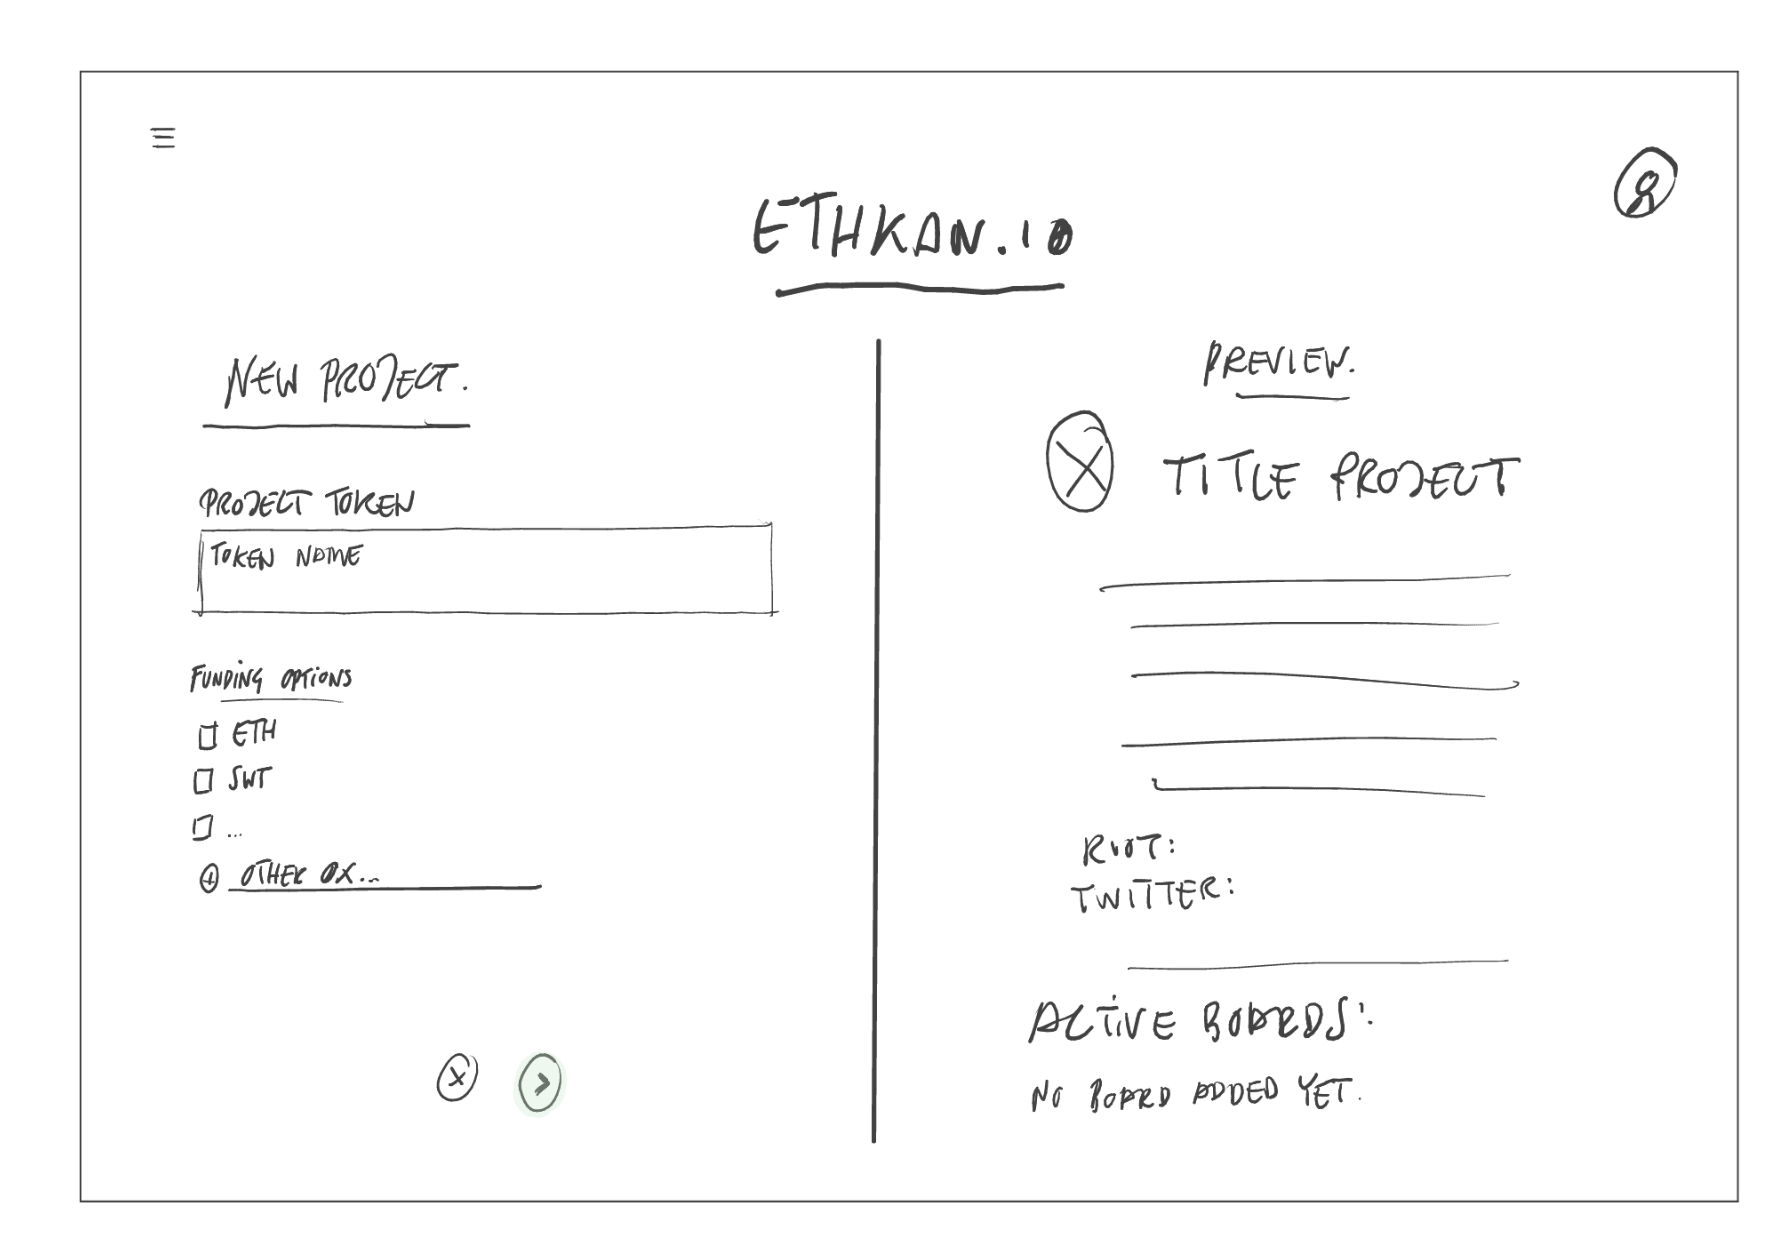 ETHKAN.IO
NEW PROJECT.
PROJECT TOKEN
TOKEN NAME
FUNDING OPTIONS
ETH
SWT
...
OTHER OX...
PREVIEW.
TITLE PROJECT
RIOT:
TWITTER:
ACTIVE BOARDS:
NO BOARD ADDED YET.